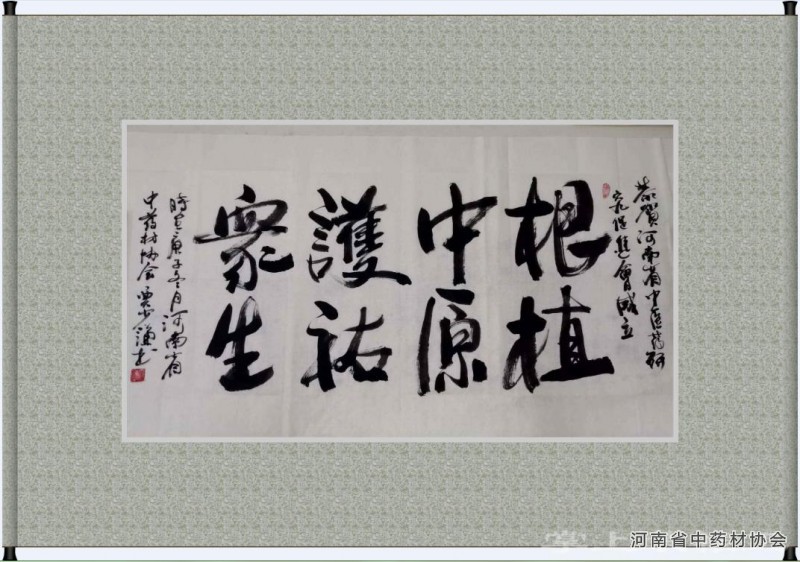 恭賀河南省中医药研
究促進會成立
根植
中原
護祐
衆生
庚子冬月河南省
中药材协会
河南省中药材协会